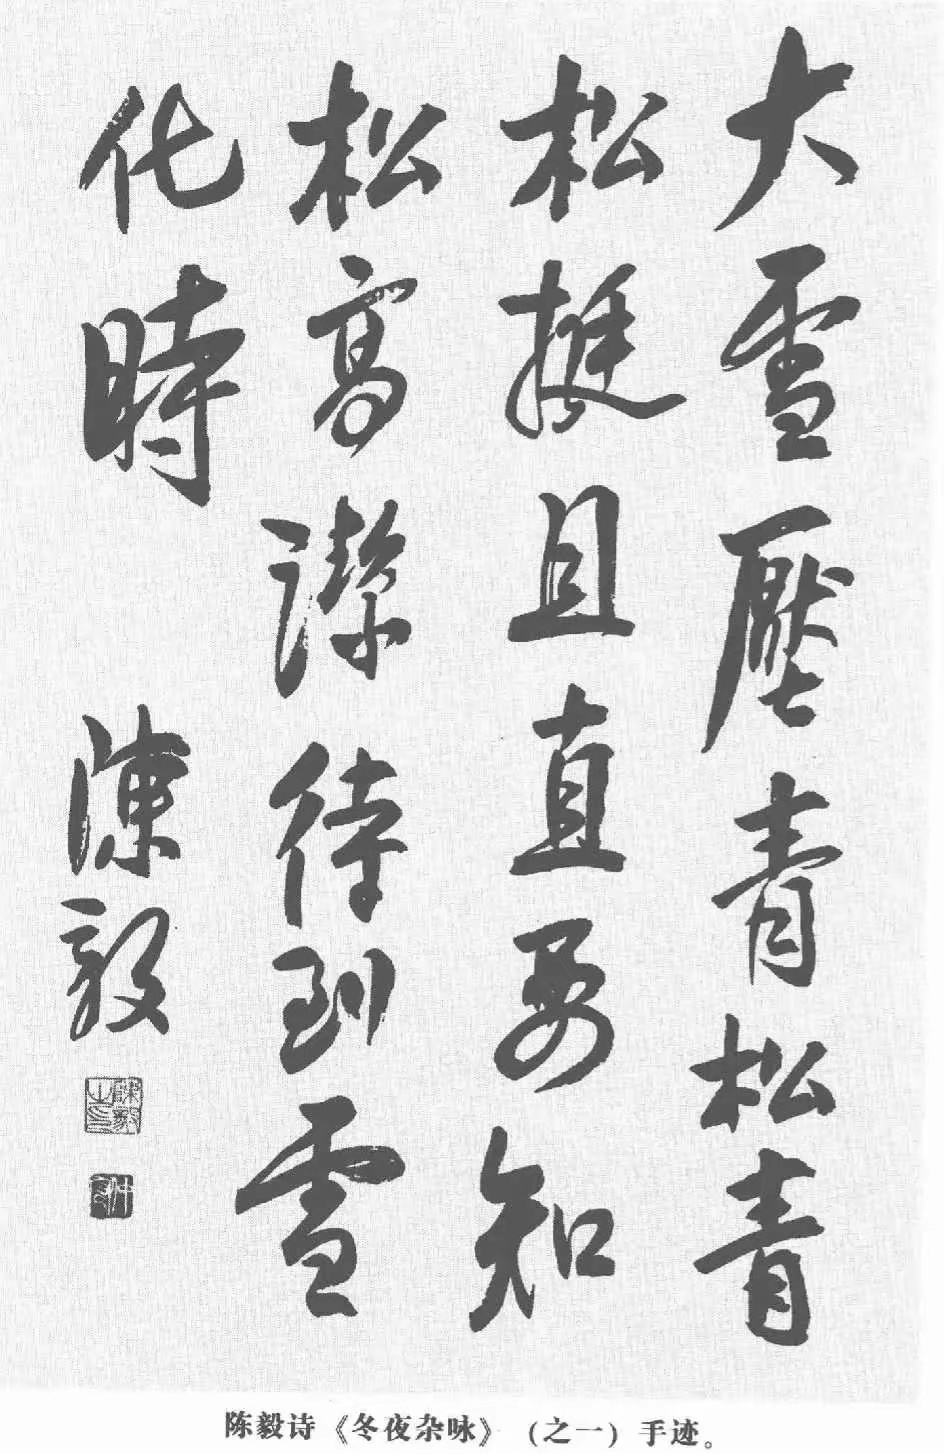 大雪壓青松青
松挺且直要知
松高潔待到雪
化時 陳毅
陳毅之印
陈毅诗《冬夜杂咏》(之一)手迹。